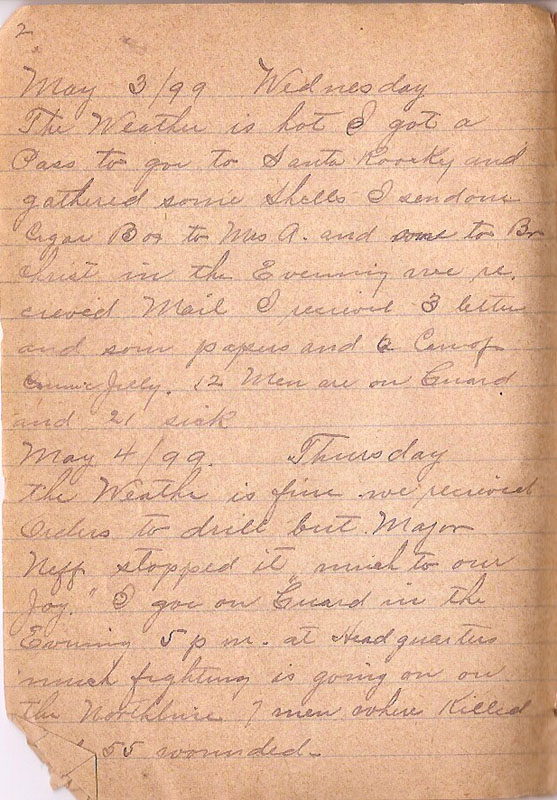 2
May 3/99 Wednesday
The Weather is hot I got a
Pass to goe to Santa and
gathered some Shells I send one
Cigar Box to Mrs A. and one to Br
Christ in the Evening we re.
cieved Mail I recieved 3 letters
and som papers and 6 Can of
Jelly. 12 Men are on Guard
and 21 sick
May 4/99. Thursday
the Weathe is fine we recieved
Orders to drill but Major
Neff stopped it much to our
Joy." I goe on "Guard in the
Evening 5 p m. at Headquarters
much fighting is going on on
the Northline 7 men where Killed
55 wounded.